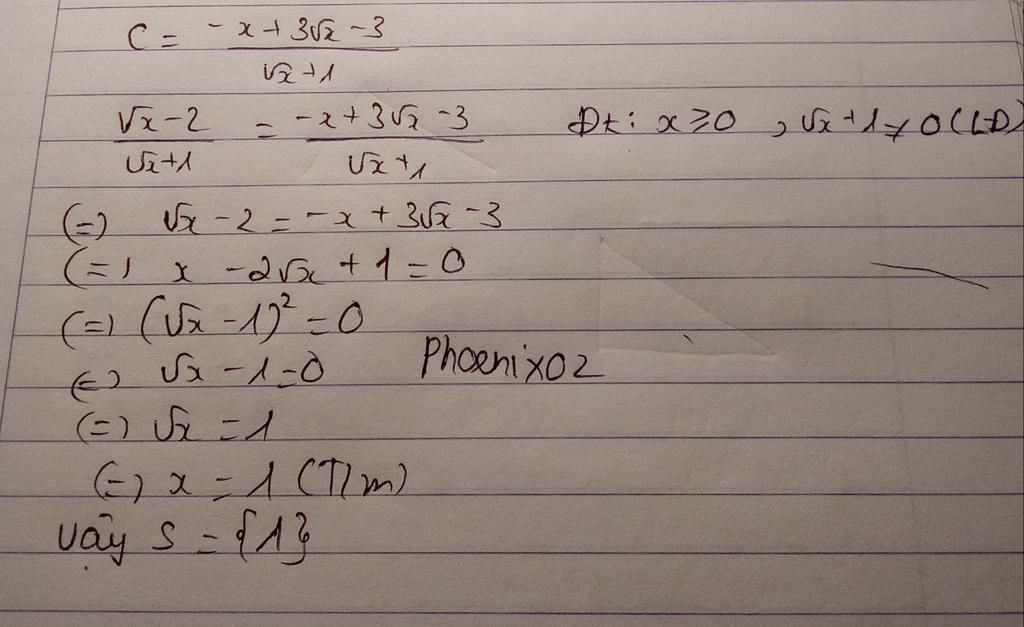 C = (-x + 3√x - 3)/(√x + 1)
(√x - 2)/(√x + 1) = (-x + 3√x - 3)/(√x + 1) Đk: x ≥ 0 , √x + 1 ≠ 0 (LĐ)
(=) √x - 2 = -x + 3√x - 3
(=) x - 2√x + 1 = 0
(=) (√x - 1)² = 0
(=) √x - 1 = 0 Phoenix02
(=) √x = 1
(=) x = 1 (T/m)
Vậy S = {1}